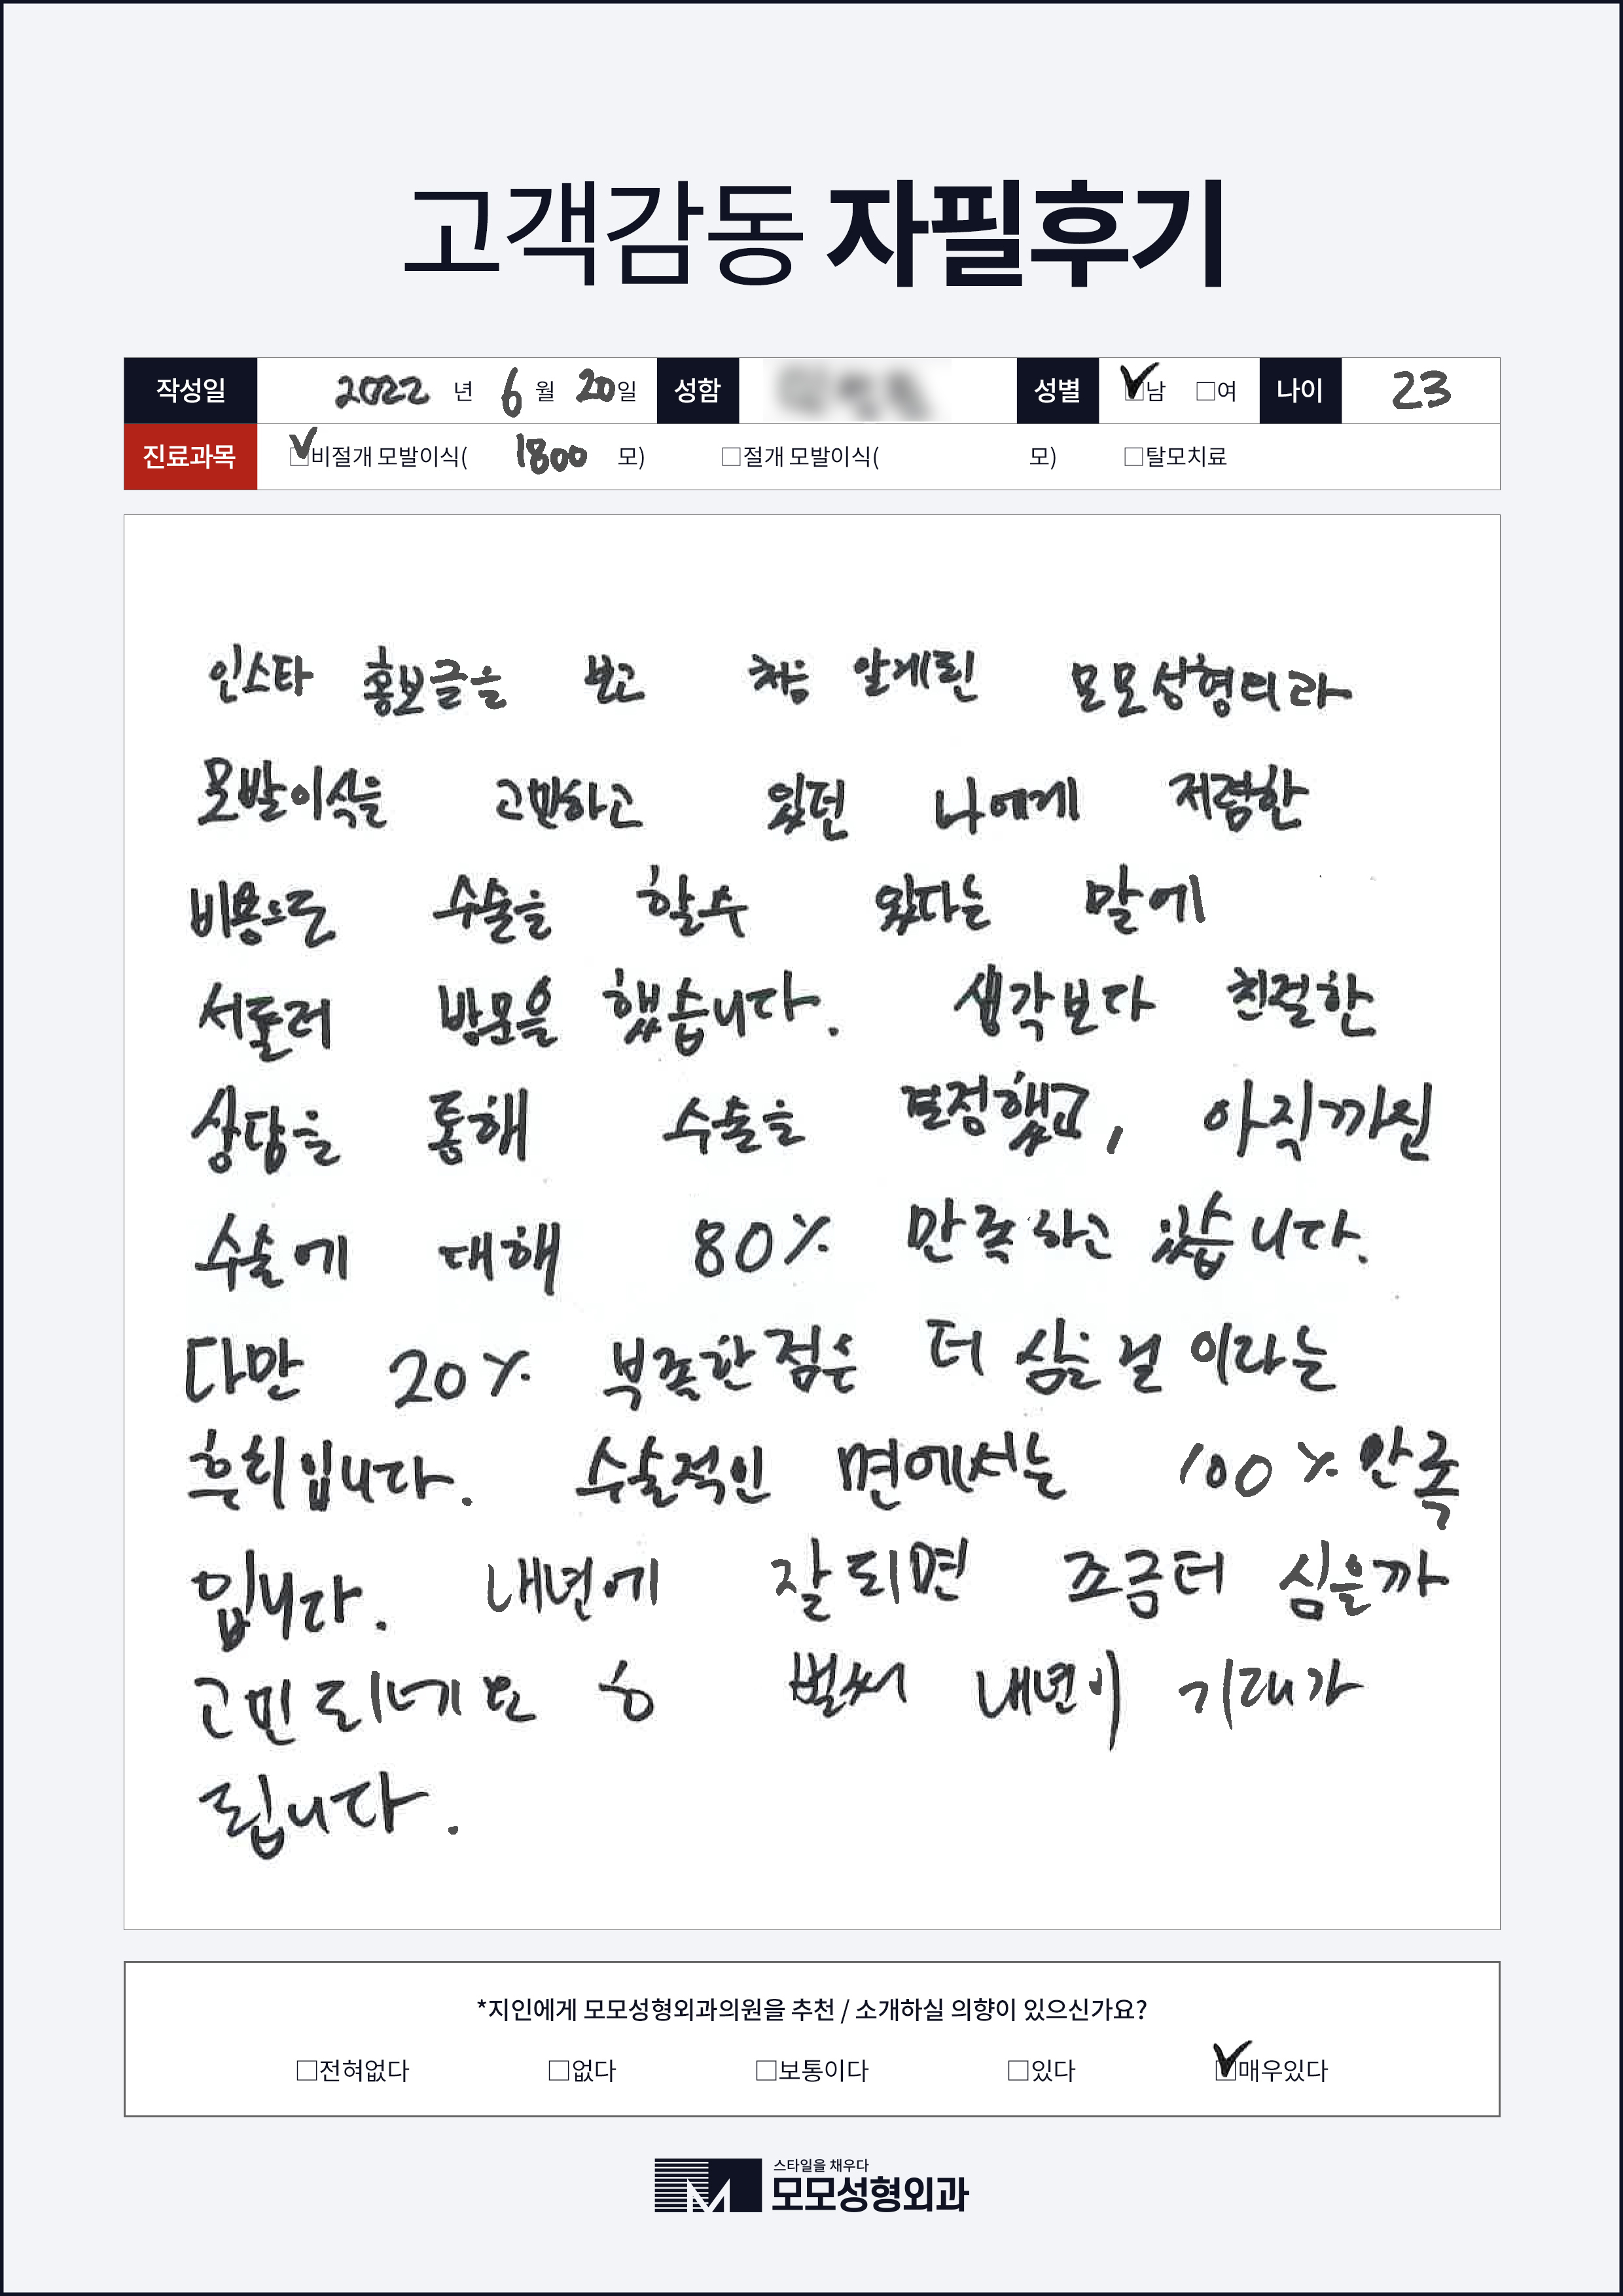 고객감동 자필후기
작성일 2022 년 6 월 20 일 성함 성별 ☑남 □여 나이 23
진료과목 ☑비절개 모발이식( 1800 모) □절개 모발이식( 모) □탈모치료
인스타 홍보글을 보고 처음 알게된 모모성형외과
모발이식을 고민하고 있던 나에게 저렴한
비용으로 수술을 할수 있다는 말에
서둘러 방문을 했습니다. 생각보다 친절한
상담을 통해 수술을 결정했고, 아직까진
수술에 대해 80% 만족하고 있습니다.
다만 20% 부족한점은 더 심을걸 이라는
후회입니다. 수술적인 면에서는 100% 만족
입니다. 내년에 잘되면 조금더 심을까
고민되네요 ㅎ 벌써 내년이 기대가
됩니다.
*지인에게 모모성형외과의원을 추천 / 소개하실 의향이 있으신가요?
□전혀없다 □없다 □보통이다 □있다 ☑매우있다
스타일을 채우다
모모성형외과